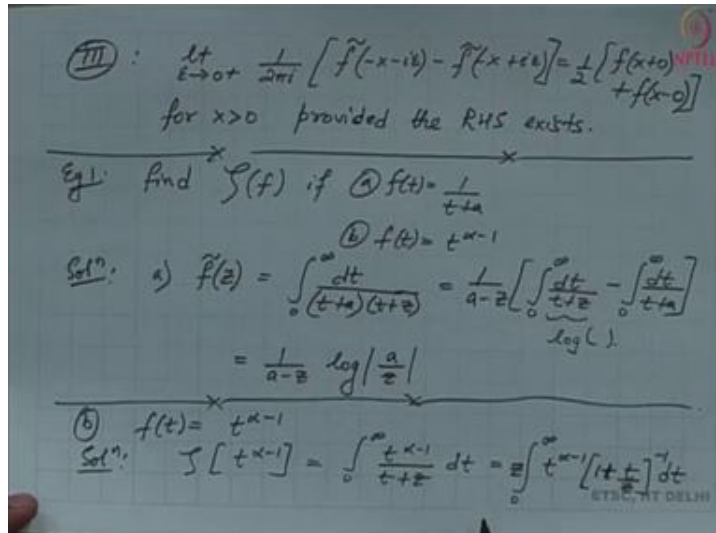 (III) : lt ε→0+ 1/2πi [f̃(-x-iε) - f̃(-x+iε)] = 1/2 [f(x+0) + f(x-0)]
for x>0 provided the RHS exists.
Eg1. find ζ(f) if (a) f(t) = 1/(t+a)
(b) f(t) = t^(α-1)
Solⁿ: a) f̃(z) = ∫₀^∞ dt/((t+a)(t+z)) = 1/(a-z) [∫₀^∞ dt/(t+z) - ∫₀^∞ dt/(t+a)]
log( ).
= 1/(a-z) log|a/z|
(b) f(t) = t^(α-1)
Solⁿ: ζ[t^(α-1)] = ∫₀^∞ t^(α-1)/(t+z) dt = z∫₀^∞ t^(α-1) [1+t/z]^-1 dt
NPTEL
ETSC, IIT DELHI